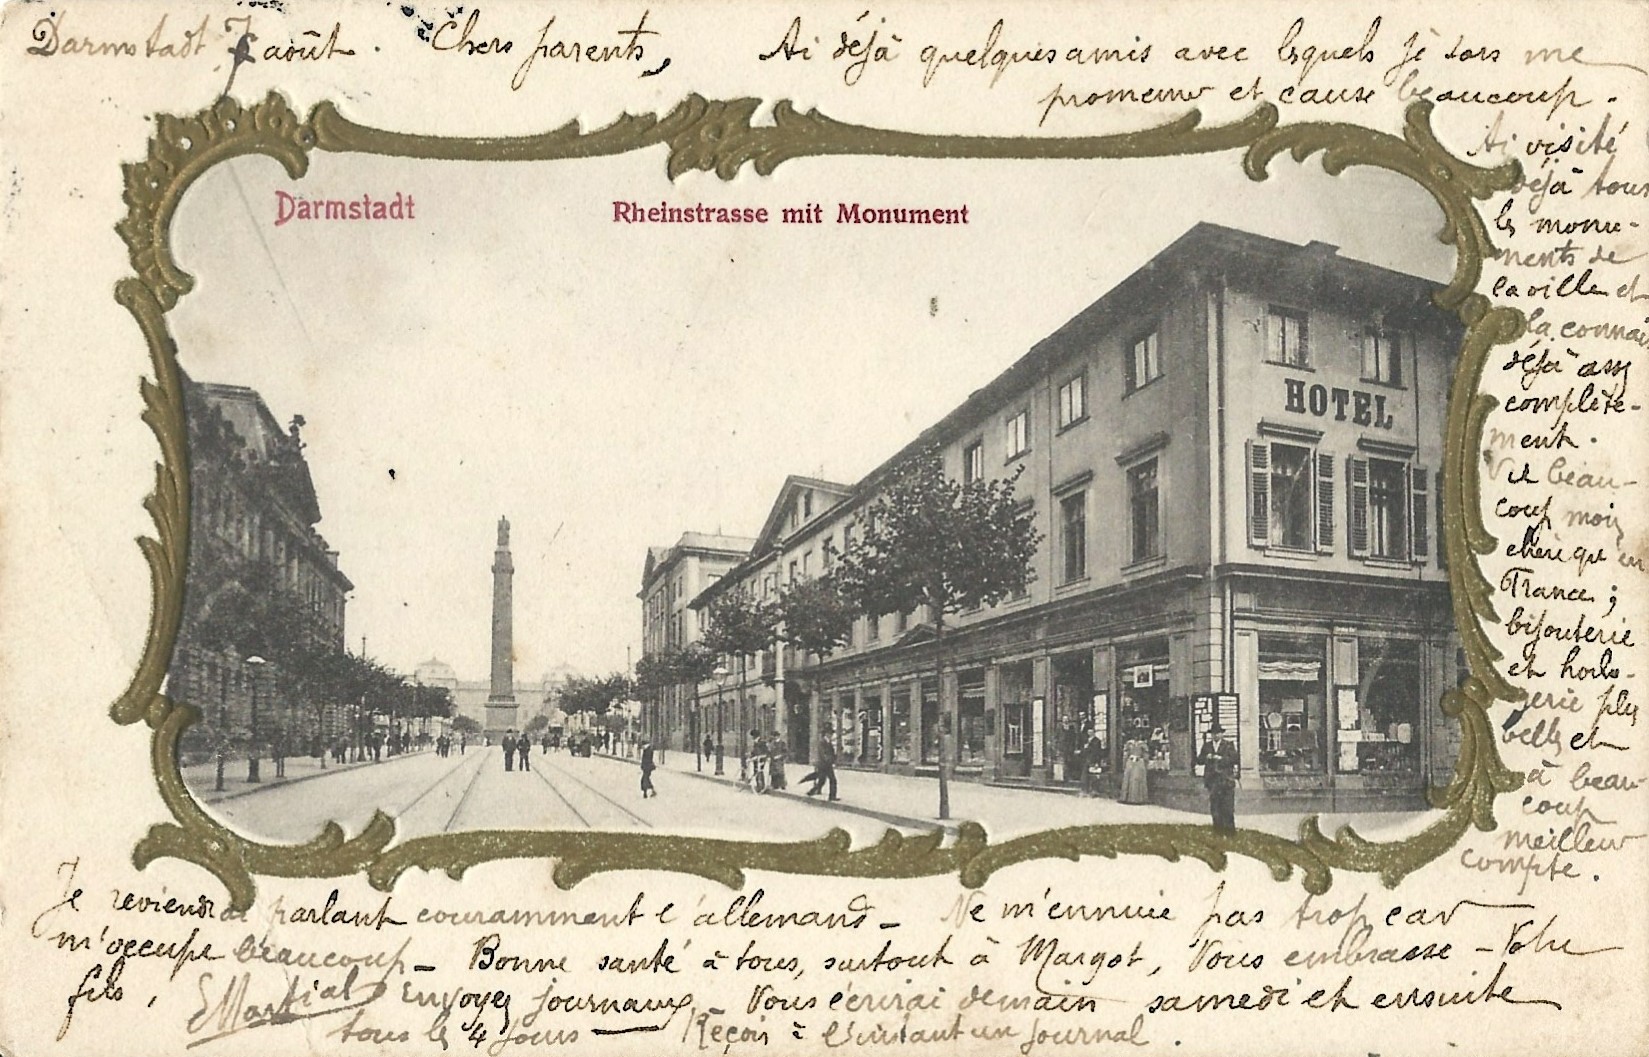 Darmstadt 7 août. Chers parents, Ai déjà quelques amis avec lesquels je sors me
promener et cause beaucoup.
Ai visité
déjà tous
les monu-
ments de
la ville et
la connais
déjà assez
complète-
ment.
Vie beau-
coup moins
chère qu'en
France ;
bijouterie
et horlo-
gerie plus
belles et
à beau-
coup
meilleur
compte.
Darmstadt
Rheinstrasse mit Monument
HOTEL
Je reviendrai parlant couramment l'allemand - Ne m'ennuie pas trop car
m'occupe beaucoup - Bonne santé à tous, surtout à Margot, Vous embrasse - Votre
fils, EMartial Envoyez journaux - Vous écrirai demain samedi et ensuite
tous les 4 jours - Reçois à l'instant un journal.